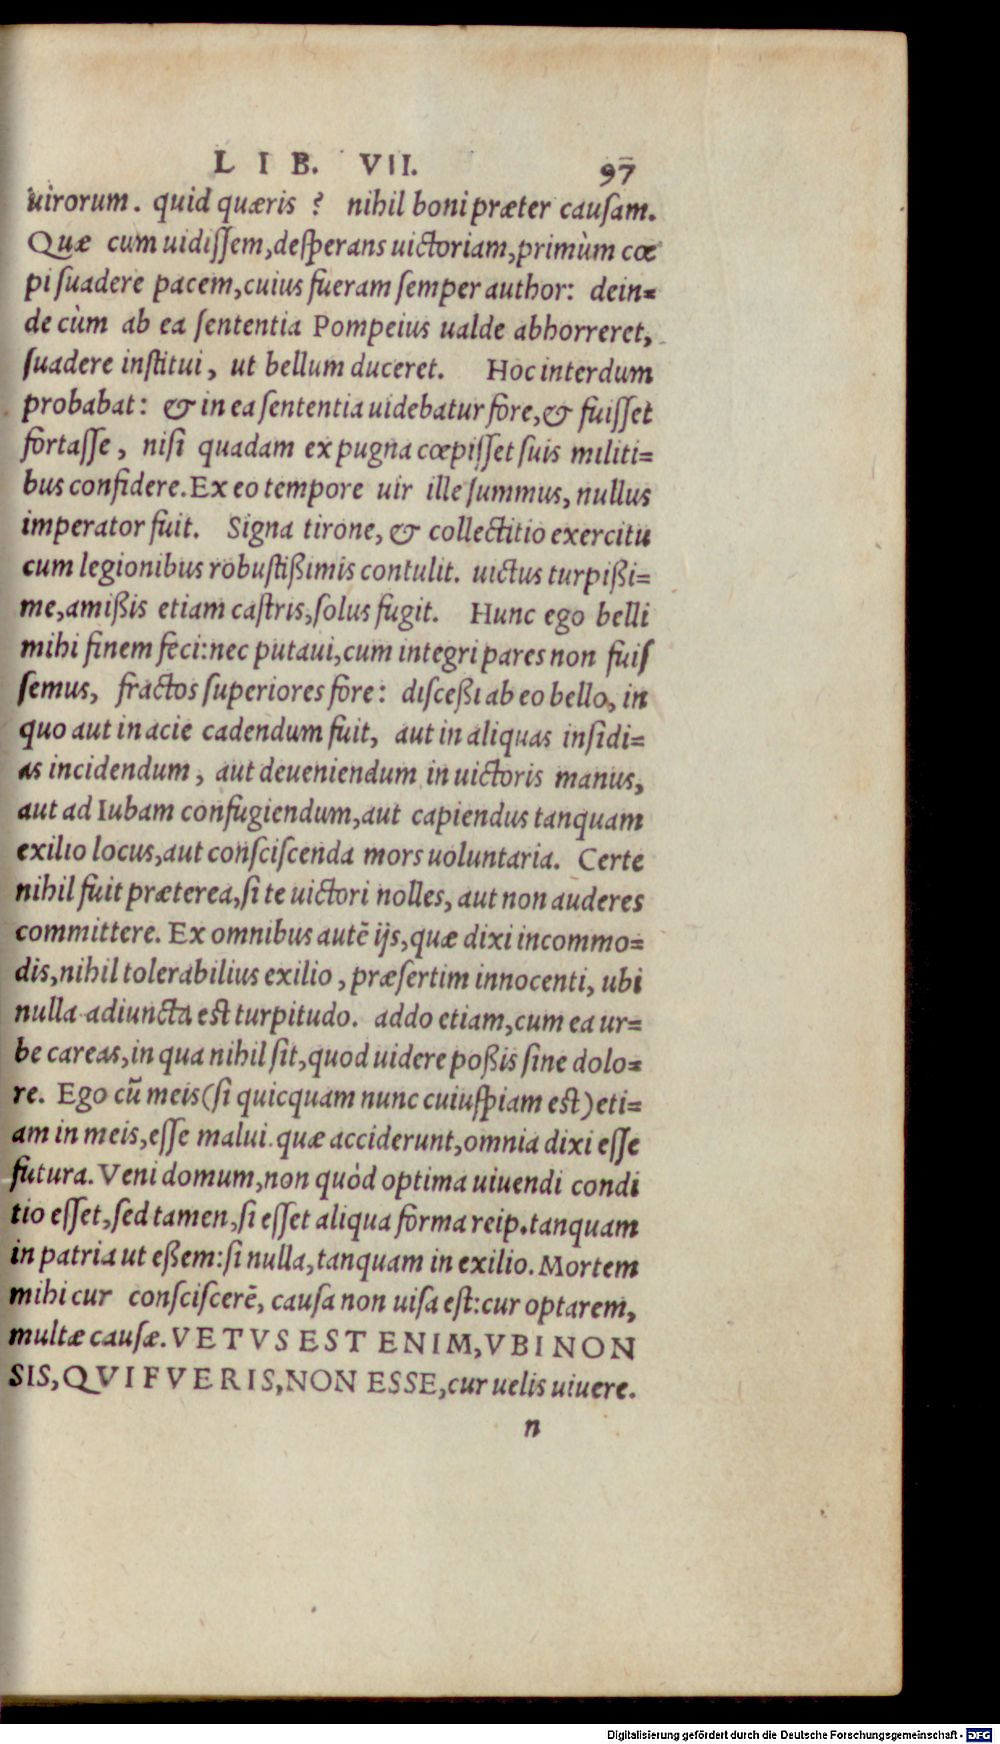 LIB. VII. 97
uirorum. quid quæris ? nihil boni præter causam.
Quæ cum uidiſſem, deſperans uictoriam, primùm cœ
pi ſuadere pacem, cuius fueram ſemper author: dein=
de cùm ab ea ſententia Pompeius ualde abhorreret,
ſuadere inſtitui, ut bellum duceret. Hoc interdum
probabat: & in ea ſententia uidebatur fore, & fuiſſet
fortaſſe, niſi quadam ex pugna cœpiſſet ſuis militi=
bus confidere. Ex eo tempore uir ille ſummus, nullus
imperator fuit. Signa tirone, & collectitio exercitu
cum legionibus robuſtißimis contulit. uictus turpißi=
me, amißis etiam caſtris, ſolus fugit. Hunc ego belli
mihi finem feci: nec putaui, cum integri pares non fuiſ
ſemus, fractos ſuperiores fore: diſceßi ab eo bello, in
quo aut in acie cadendum fuit, aut in aliquas inſidi=
as incidendum, aut deueniendum in uictoris manus,
aut ad Iubam confugiendum, aut capiendus tanquam
exilio locus, aut conſciſcenda mors uoluntaria. Certe
nihil fuit præterea, ſi te uictori nolles, aut non auderes
committere. Ex omnibus autē ijs, quæ dixi incommo=
dis, nihil tolerabilius exilio, præſertim innocenti, ubi
nulla adiuncta eſt turpitudo. addo etiam, cum ea ur=
be careas, in qua nihil ſit, quod uidere poßis ſine dolo=
re. Ego cū meis (ſi quicquam nunc cuiuſpiam eſt) eti=
am in meis, eſſe malui. quæ acciderunt, omnia dixi eſſe
futura. Veni domum, non quòd optima uiuendi condi
tio eſſet, ſed tamen, ſi eſſet aliqua forma reip. tanquam
in patria ut eßem: ſi nulla, tanquam in exilio. Mortem
mihi cur conſciſcerē, cauſa non uiſa eſt: cur optarem,
multæ cauſæ. VETVS EST ENIM, VBI NON
SIS, QVI FVERIS, NON ESSE, cur uelis uiuere.
n
Digitalisierung gefördert durch die Deutsche Forschungsgemeinschaft - DFG